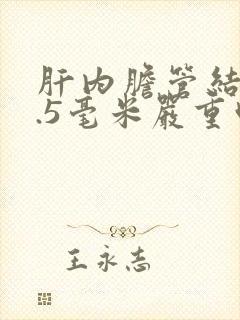 肝内膽管結
.5毫米嚴重
王永志